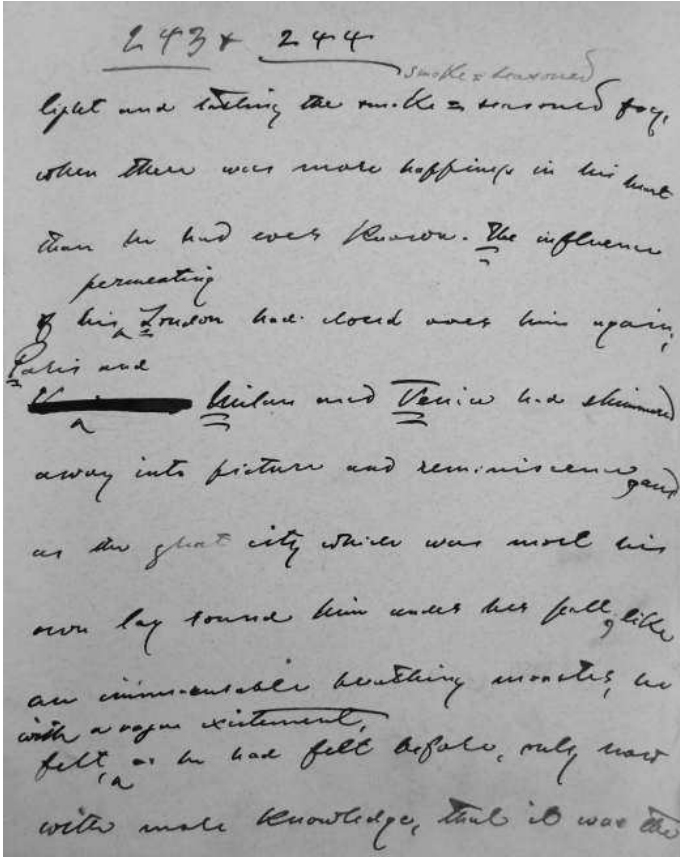 243 & 244
smoke=seasoned
light and tasting the smoke=seasoned fog,
when there was more happiness in his heart
than he had ever known. The influence
permeating
of his London had closed over him again;
Paris and
Milan and Venice had shimmered
away into picture and reminiscence, and
as the great city which was most his
own lay round him under her pall, like
an immeasurable breathing monster, he
with a vague excitement,
felt, as he had felt before, only now
with more knowledge, that it was the